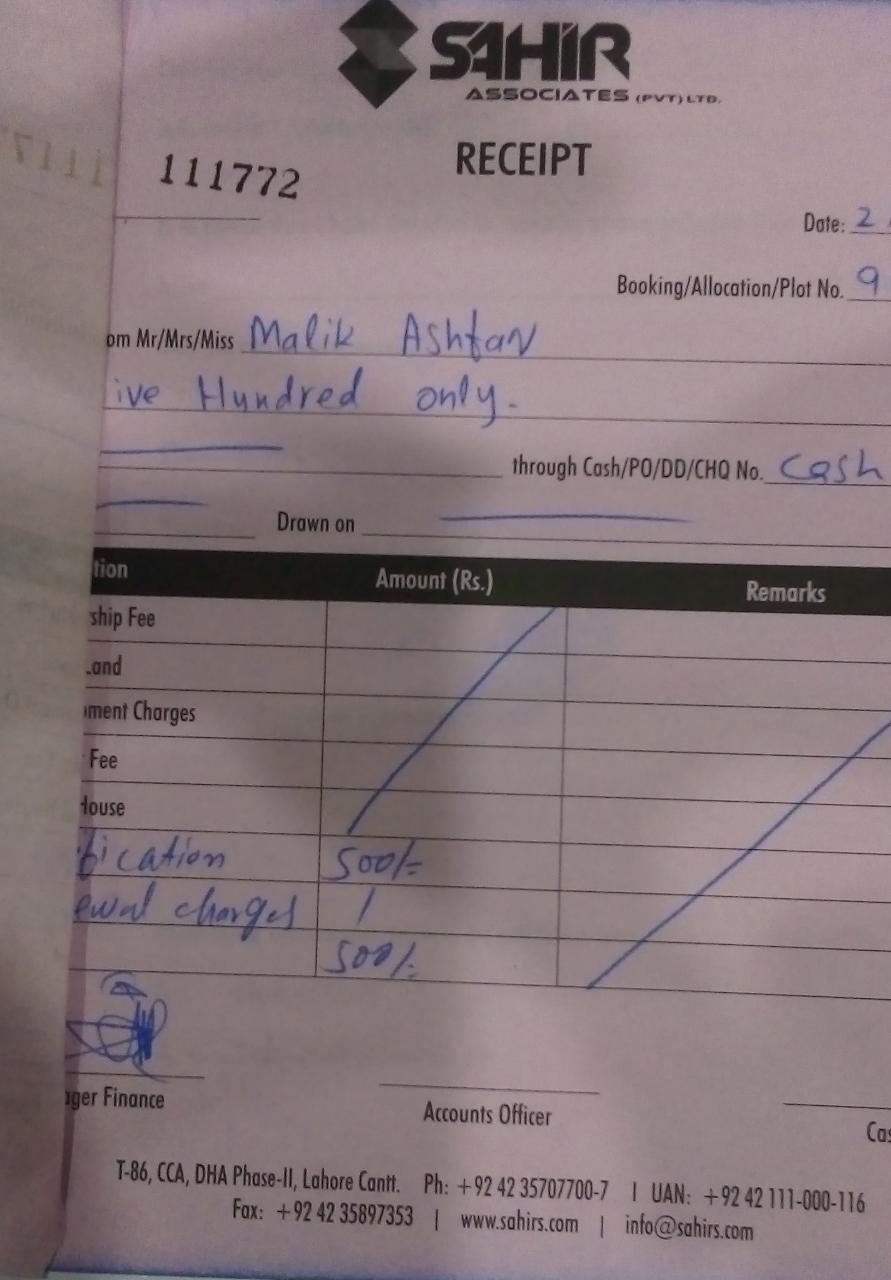 SAHIR
ASSOCIATES (PVT) LTD.
RECEIPT
111772
Date: 2
Booking/Allocation/Plot No. 9
om Mr/Mrs/Miss Malik
ive Hundred only.
through Cash/PO/DD/CHQ No. Cash
Drawn on
tion Amount (Rs.) Remarks
ship Fee
Land
ment Charges
Fee
House
fication 500/-
ewal charges /
500/-
ager Finance Accounts Officer Cas
T-86, CCA, DHA Phase-II, Lahore Cantt. Ph: +92 42 35707700-7 | UAN: +92 42 111-000-116
Fax: +92 42 35897353 | www.sahirs.com | info@sahirs.com